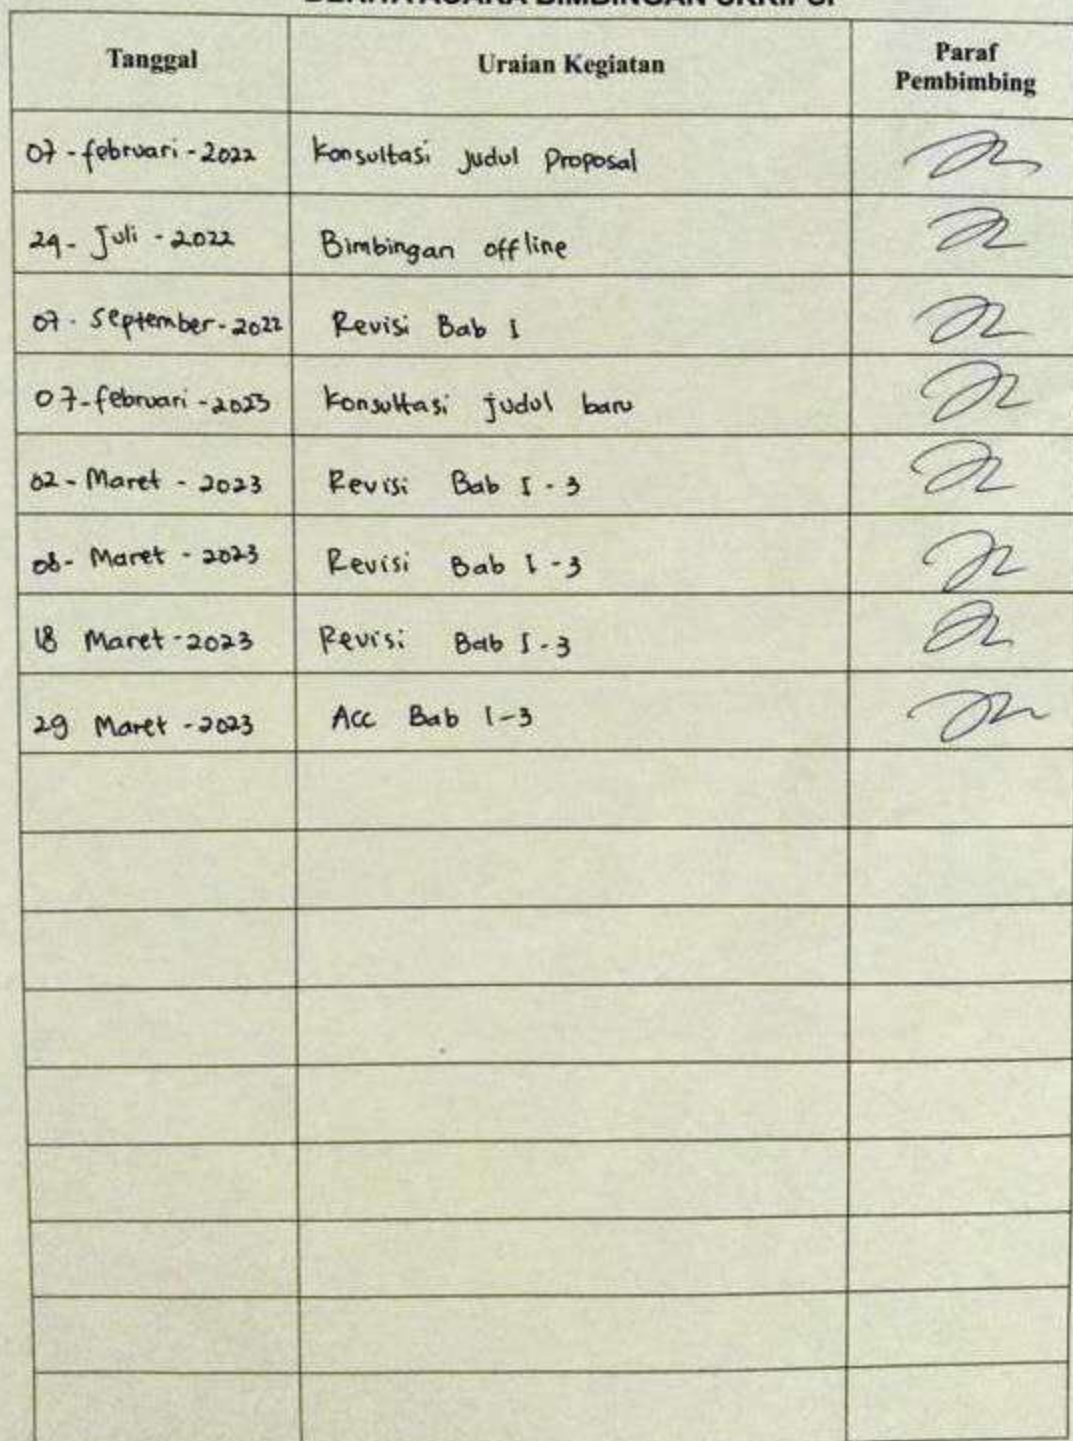 BERITA ACARA BIMBINGAN SKRIPSI
Tanggal Uraian Kegiatan Paraf Pembimbing
07 - februari - 2022 Konsultasi judul Proposal
29 - Juli - 2022 Bimbingan offline
07 - September - 2022 Revisi Bab I
07 - februari - 2023 Konsultasi judul baru
02 - Maret - 2023 Revisi Bab I - 3
08 - Maret - 2023 Revisi Bab I - 3
18 Maret - 2023 Revisi Bab I - 3
29 Maret - 2023 Acc Bab 1-3